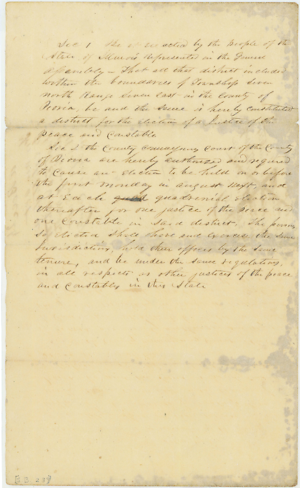 Sec 1 Be it enacted by the People of the
State of Illinois represented in the General
Assembly – That all that district included
within the boundaries of Township
north Range Seven East in the County of
Peoria be and the same is hereby constituted
a district for the election of a Justice of the
Peace and Constable
Sec 2 The County Commissioners Court of the County
of Peoria are hereby authorised and required
to cause an election to be held on or before
the first monday in august next, and
at Each quadrennial election
thereafter, for one justice of the peace and
one Constable in said district, The persons
So elected shall have and exercise the same
Jurisdiction, hold their offices by the same
tenure, and be under the same regulations
in all respects as other justices of the peace
and Constables in this State